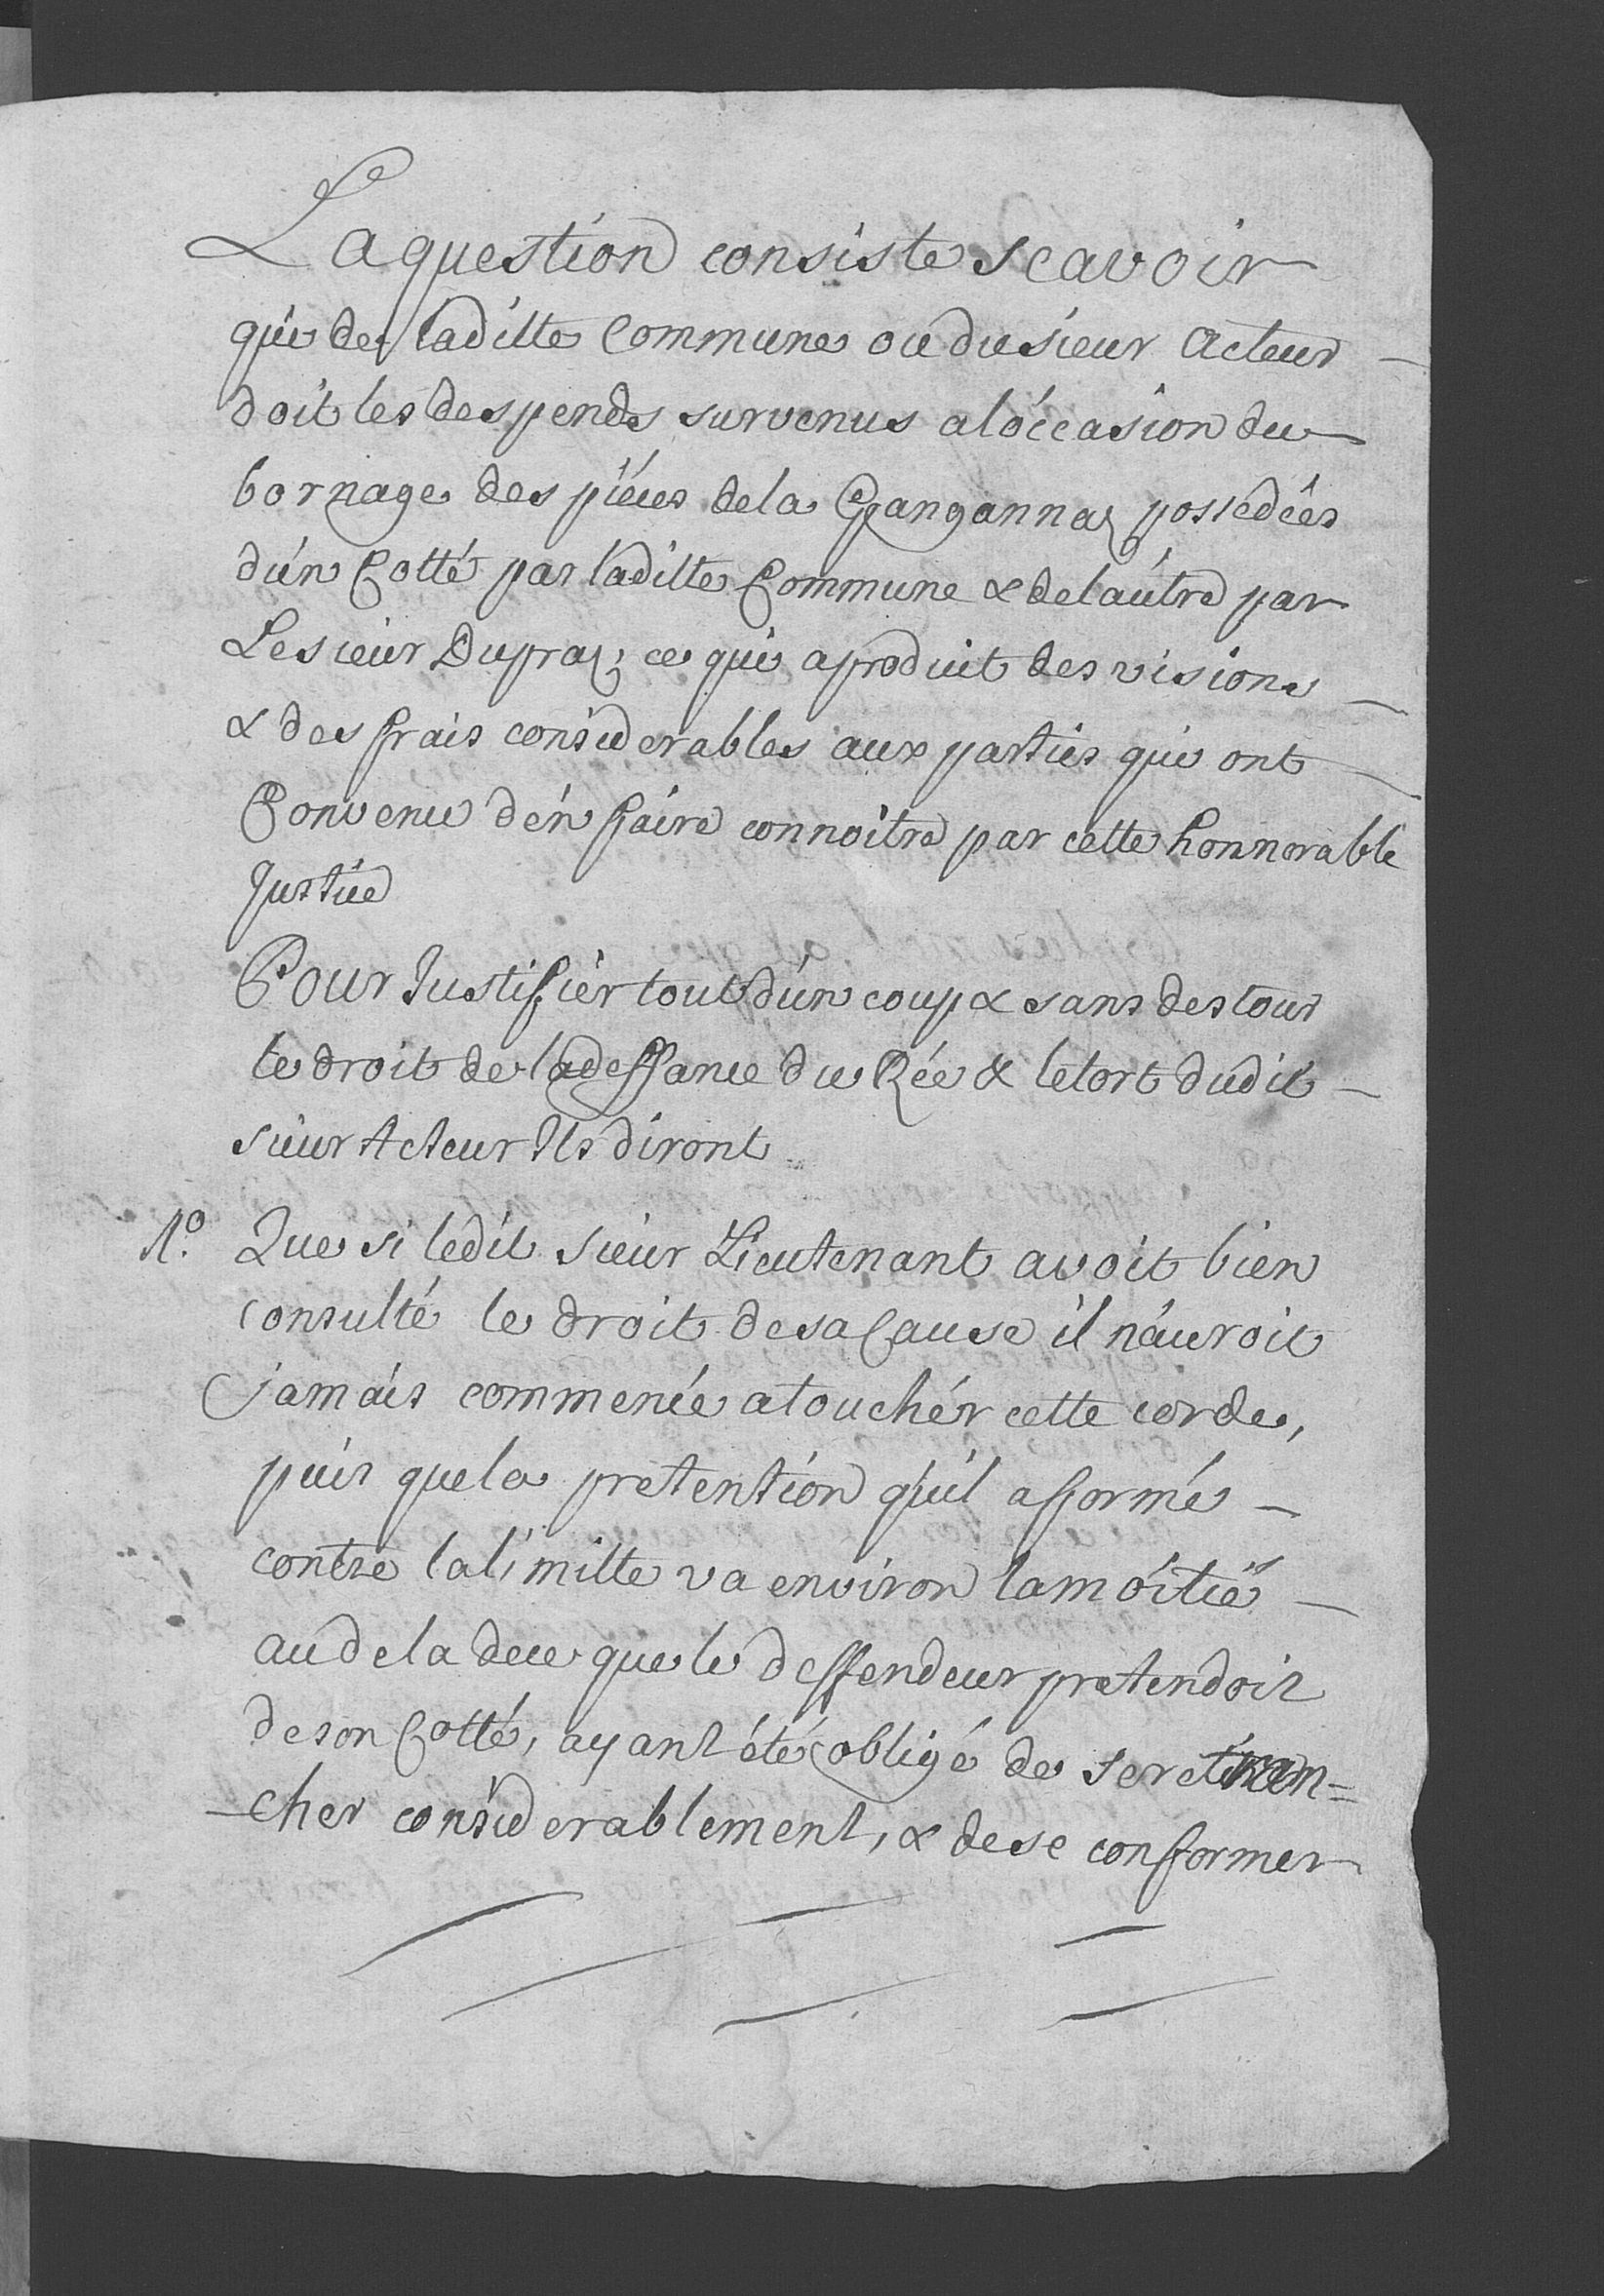 La question consiste scavoir
qui de laditte Commune ou du sieur Acteur
doit les despends survenus a lóccasion du
bornage des piéces de la Gangannaz possedées
dún Cotté par laditte Commune & de laútre par
Le sieur Dupraz; ce qui a produit des visions
& des frais considerables aux parties qui ont
Convenu dén faire connoitre par cette honnorable
Justice
Pour Justifier tout dún coup & sans destour
le droit de la deffance du Rée & le tort dudit
sieur Acteur Ils diront
1º. Que si ledit sieur Lieutenant avoit bien
consulté le droit de sa Cause il náuroit
jamáis commencé a touchér cette corde,
puis que la pretention quíl a formé
contre la limitte va environ la moitié
au dela de ce que le deffendeur pretendoit
de son Cotté, ayant été obligé de se retran=
-cher considerablement, & de se conformer